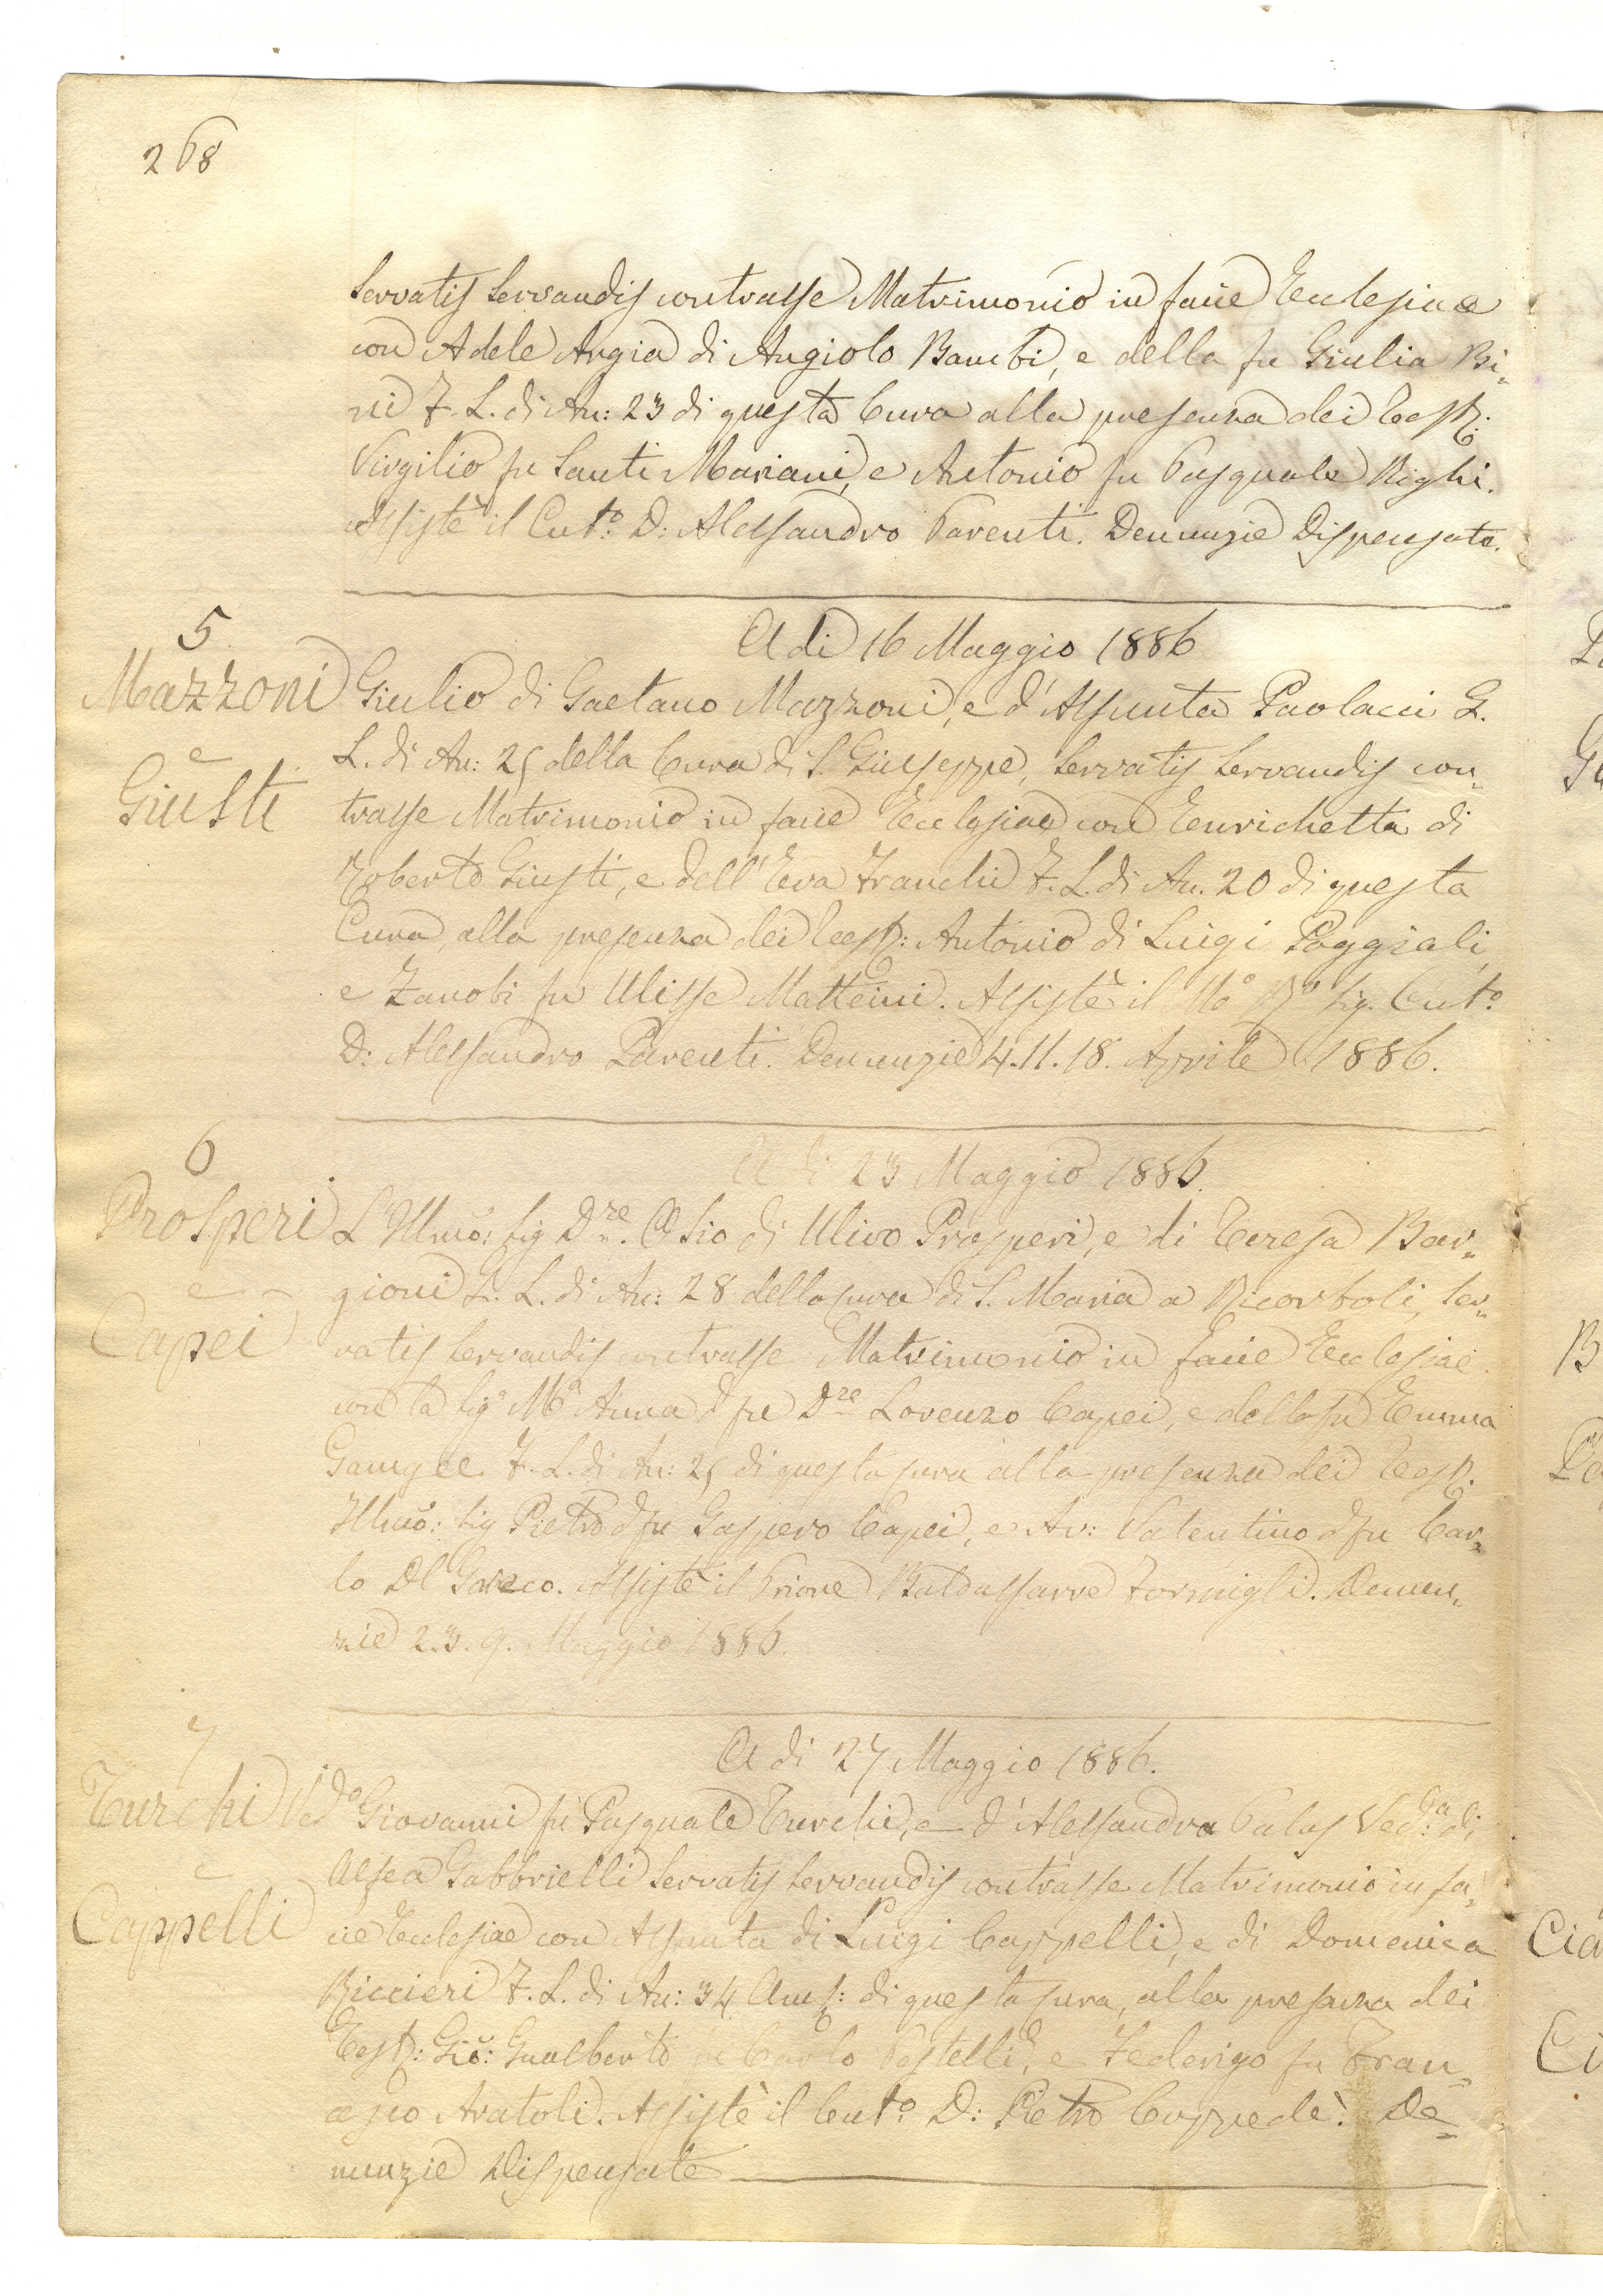 268
servatis servandis contrasse Matrimonio in facie Ecclesiae
con Adele Argia di Angiolo Bambi, e della fu Giulia Bi-
ni F. L. di An: 23 di questa Cura alla presenza dei Test:
Virgilio fu Santi Mariani, e Antonio fu Pasquale Righi.
Assistè il Cut.o D: Alessandro Parenti. Denunzie Dispensate.
A di 16 Maggio 1886
5
Mazzoni
e
Giusti
Giulio di Gaetano Mazzoni, e d'Assunta Paolacci G.
L. di An: 25 della Cura di S. Giuseppe, servatis servandis con-
trasse Matrimonio in facie Ecclesiae con Enrichetta di
Roberto Giusti, e dell'Eva Franchi F. L. di An. 20 di questa
Cura, alla presenza dei Test: Antonio di Luigi Poggiali,
e Zanobi fu Ulisse Matteini. Assistè il Mo. Ro. Sig. Cut.o
D: Alessandro Parenti. Denunzie 4. 11. 18. Aprile 1886.
A di 23 Maggio 1886.
6
Prosperi
e
Capei
L'Illmo: Sig D.re Clio di Ulivo Prosperi, e di Teresa Bar-
gioni G. L. di An: 28 della cura di S. Maria a Ricorboli, ser-
vatis servandis contrasse Matrimonio in facie Ecclesiae
con la Sig.a M.a Anna d fu D.re Lorenzo Capei, e della fu Emma
Gamgee. F. L. di An: 25 di questa cura alla presenza dei Test:
Illmo: Sig Pietro d fu Gaspero Capei, e Av: Valentino d fu Car-
lo Del Greco. Assistè il Priore Baldassarre Formigli. Denun-
zie 2. 3. 9. Maggio 1886.
A di 27 Maggio 1886.
7
Turchi
e
Cappelli
Ved.o Giovanni fu Pasquale Turchi, e d'Alessandra Palas Ved.a di
Alfea Gabbrielli servatis servandis contrasse Matrimonio in fa-
cie Ecclesiae con Assunta di Luigi Cappelli, e di Domenica
Riccieri F. L. di An: 34 Amb: di questa cura, alla presenza dei
Test: Gio: Gualberto di Carlo Pestelli, e Federigo fu Fran-
cesco Aratoli. Assistè il Cut.o D: Pietro Coppedè. De-
nunzie Dispensate